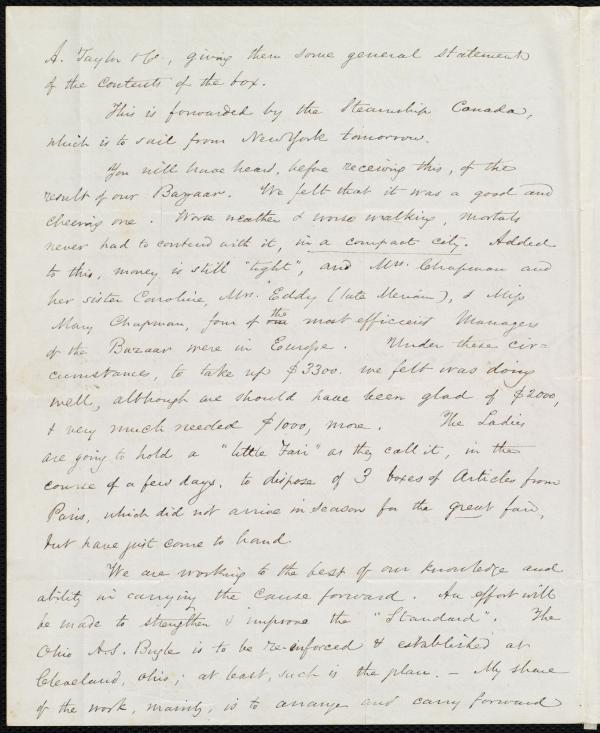 A. Taylor & Co, giving them some general statement
of the contents of the box.
This is forwarded by the Steamship Canada,
which is to sail from New York tomorrow.
You will have heard, before receiving this, of the
result of our Bazaar. We felt that it was a good and
cheering one. Worse weather & worse walking, mortals
never had to contend with it, in a compact city. Added
to this, money is still "tight", and Mrs. Chapman and
her sister Caroline, Mrs. Eddy (late Meriam), & Miss
Mary Chapman, four of the most efficient Managers
of the Bazaar were in Europe. Under these cir=
cumstances, to take up $3300. we felt was doing
well, although we should have been glad of $2000,
& very much needed $1000, more. The Ladies
are going to hold a "little Fair" as they call it, in the
course of a few days, to dispose of 3 boxes of Articles from
Paris, which did not arrive in season for the great fair,
but have just come to hand.
We are working to the best of our knowledge and
ability in carrying the Cause forward. An effort will
be made to strengthen & improve the "Standard". The
Ohio A.S. Bugle is to be re-inforced & established at
Cleveland, Ohio; at least, such is the plan. – My share
of the work, mainly, is to arrange and carry forward